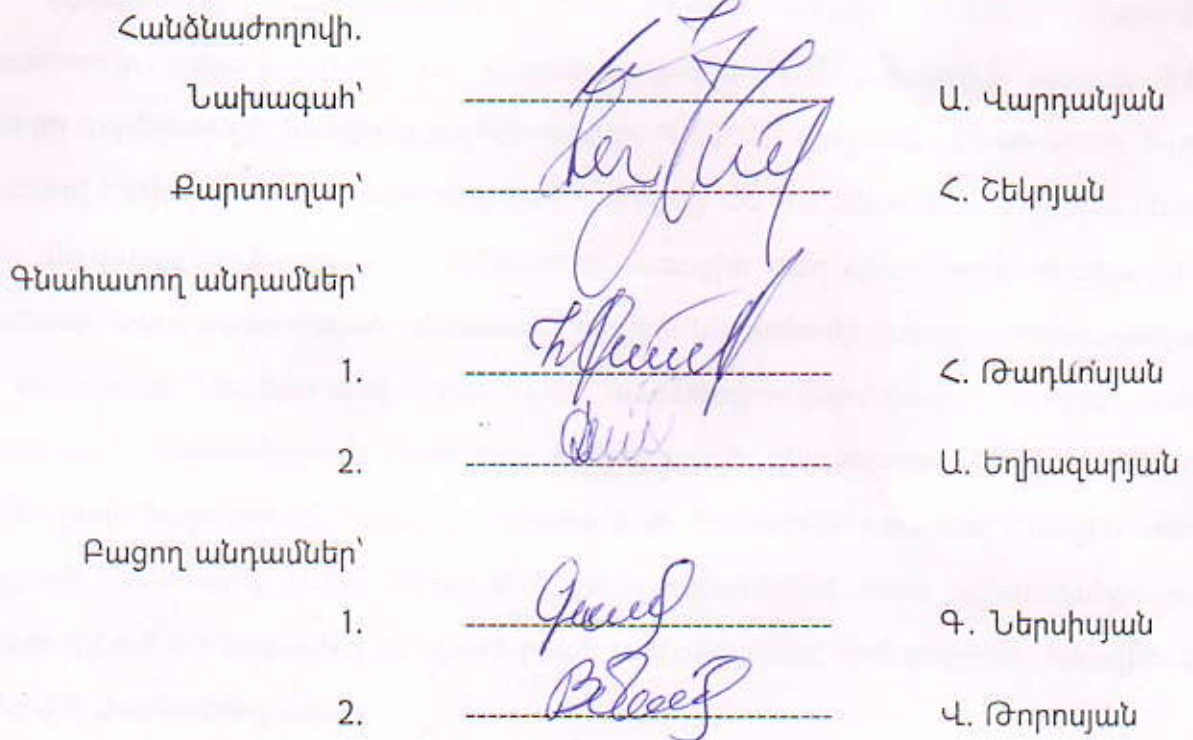 Հանձնաժողովի.
Նախագահ՝ Ա. Վարդանյան
Քարտուղար՝ Հ. Շեկոյան
Գնահատող անդամներ՝
1. Հ. Թադևոսյան
2. Ա. Եղիազարյան
Բացող անդամներ՝
1. Գ. Ներսիսյան
2. Վ. Թորոսյան